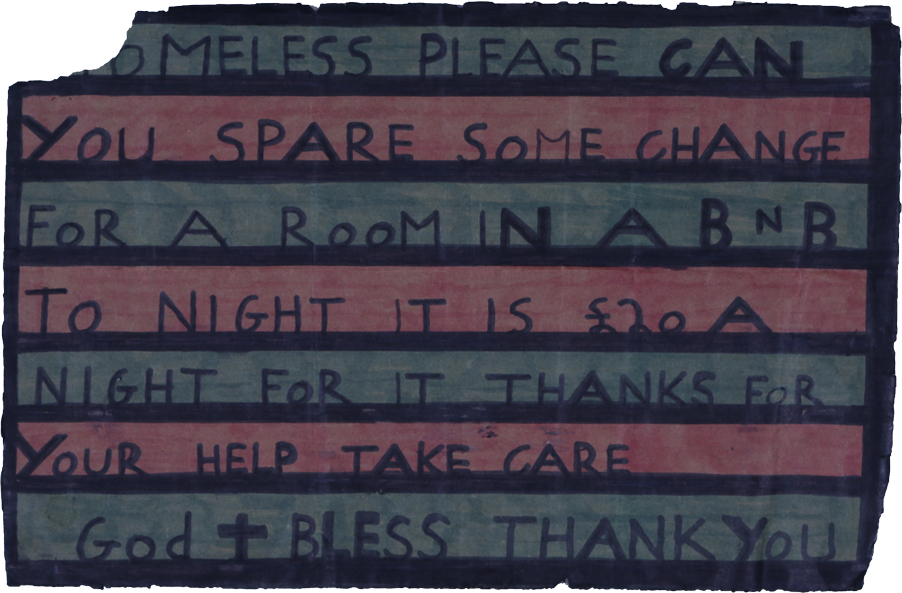 HOMELESS PLEASE CAN
YOU SPARE SOME CHANGE
FOR A ROOM IN A BNB
TO NIGHT IT IS £20 A
NIGHT FOR IT THANKS FOR
YOUR HELP TAKE CARE
God ✝ BLESS THANK YOU